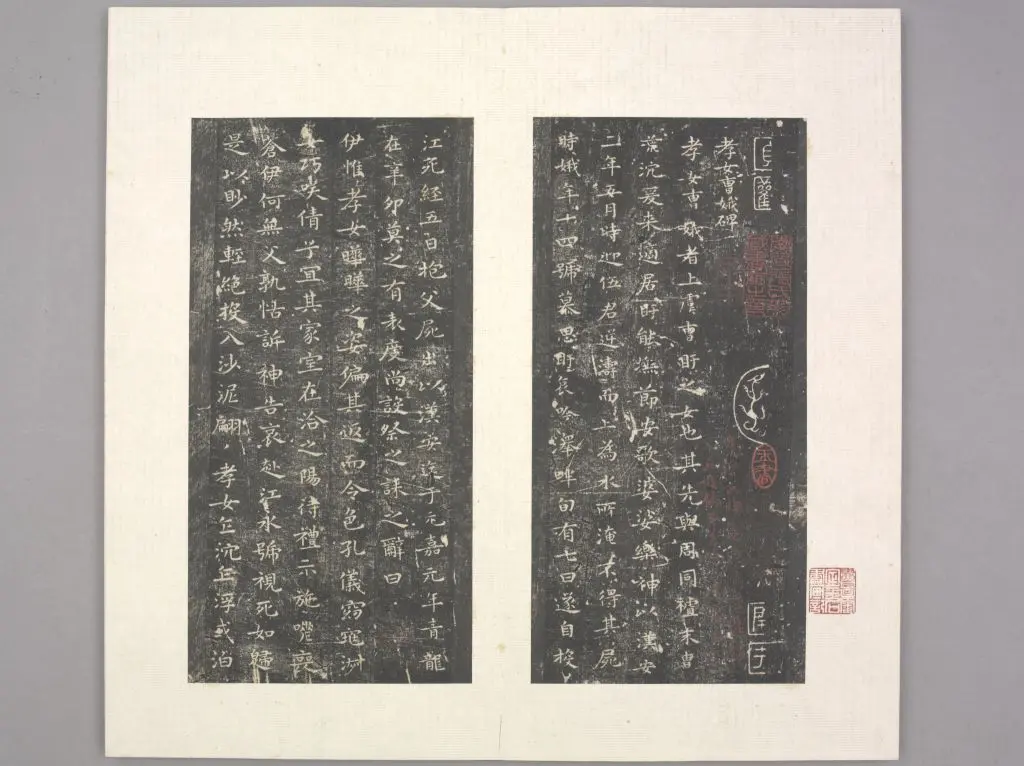 孝女曹娥碑
孝女曹娥者上虞曹盱之女也其先與周同祖末胄
荒沉爰来適居盱能撫節安歌婆娑樂神以漢安
二年五月時迎伍君逆濤而上為水所淹不得其屍
時娥年十四號慕思盱哀吟澤畔旬有七日遂自投
江死經五日抱父屍出以漢安迄于元嘉元年青龍
在辛卯莫之有表度尚設祭之誄之辭曰
伊惟孝女曄曄之姿偏其返而令色孔儀窈窕淑
女巧咲倩兮宜其家室在洽之陽待禮未施嗟喪
蒼伊何無父孰怙訴神告哀赴江永號視死如歸
是以眇然輕絕投入沙泥翩翩孝女乍沉乍浮或泊